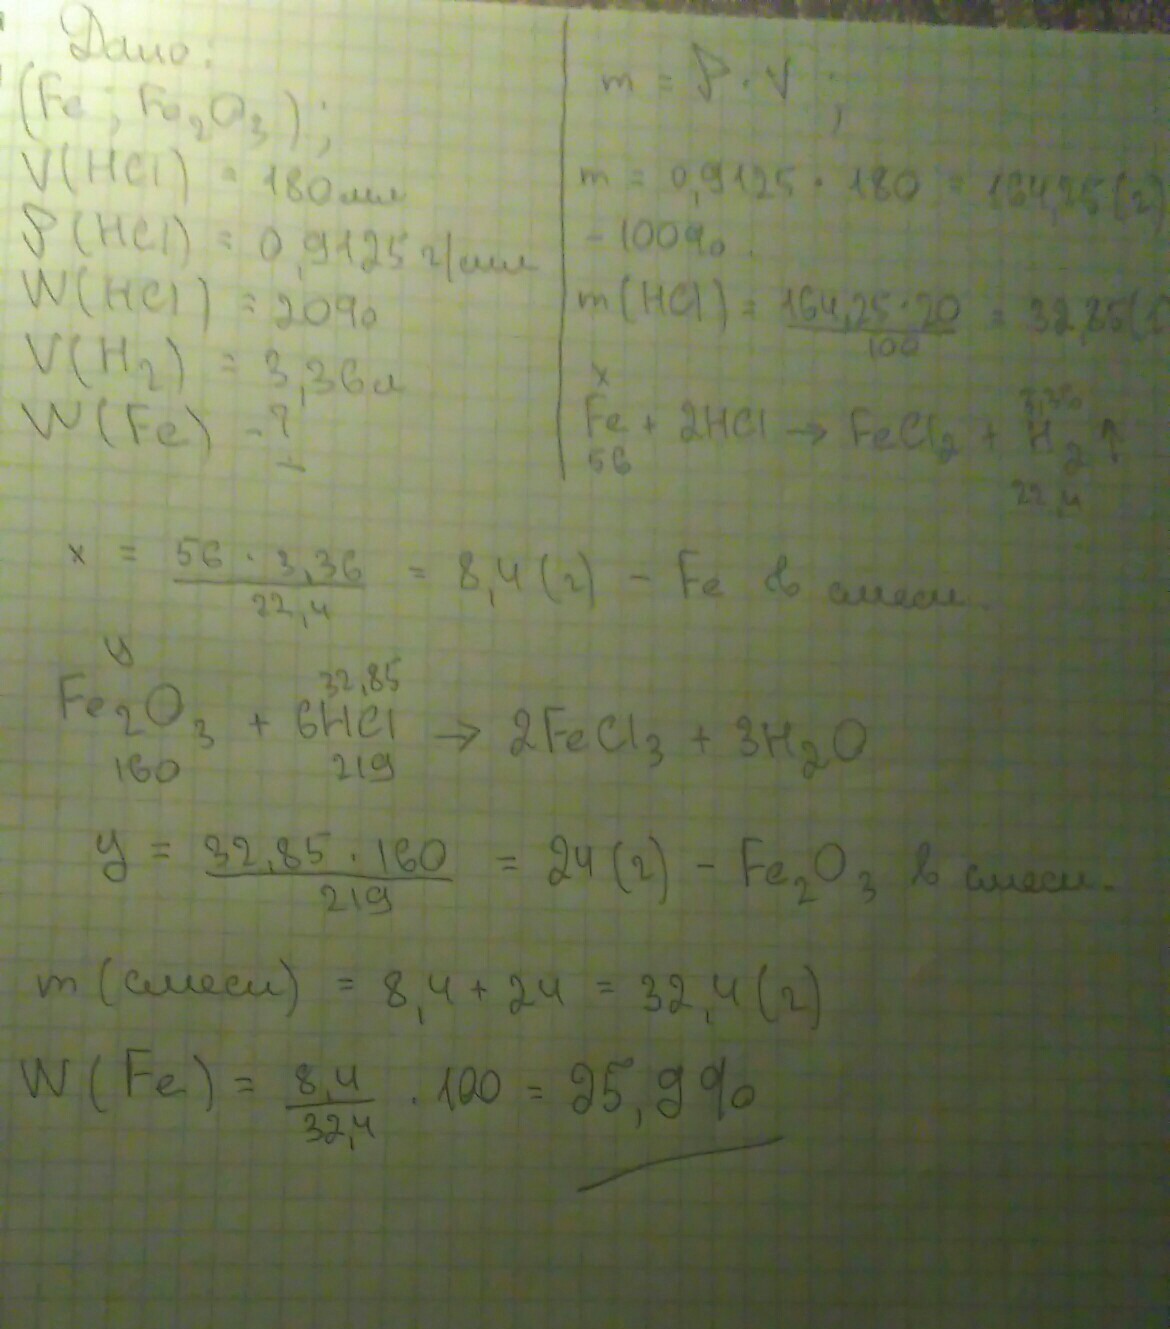 Дано:
(Fe; Fe₂O₃);
V(HCl) = 180 мл
ρ(HCl) = 0,9125 г/мл
W(HCl) = 20%
V(H₂) = 3,36 л
W(Fe) - ?
m = ρ · V ;
m = 0,9125 · 180 = 164,25 (г)
- 100%.
m(HCl) = 164,25·20 / 100 = 32,85 (г
x 3,36
Fe + 2HCl → FeCl₂ + H₂↑
56 22,4
x = 56 · 3,36 / 22,4 = 8,4 (г) - Fe в смеси.
y 32,85
Fe₂O₃ + 6HCl → 2FeCl₃ + 3H₂O
160 219
y = 32,85 · 160 / 219 = 24 (г) - Fe₂O₃ в смеси.
m (смеси) = 8,4 + 24 = 32,4 (г)
W (Fe) = 8,4 / 32,4 · 100 = 25,9%